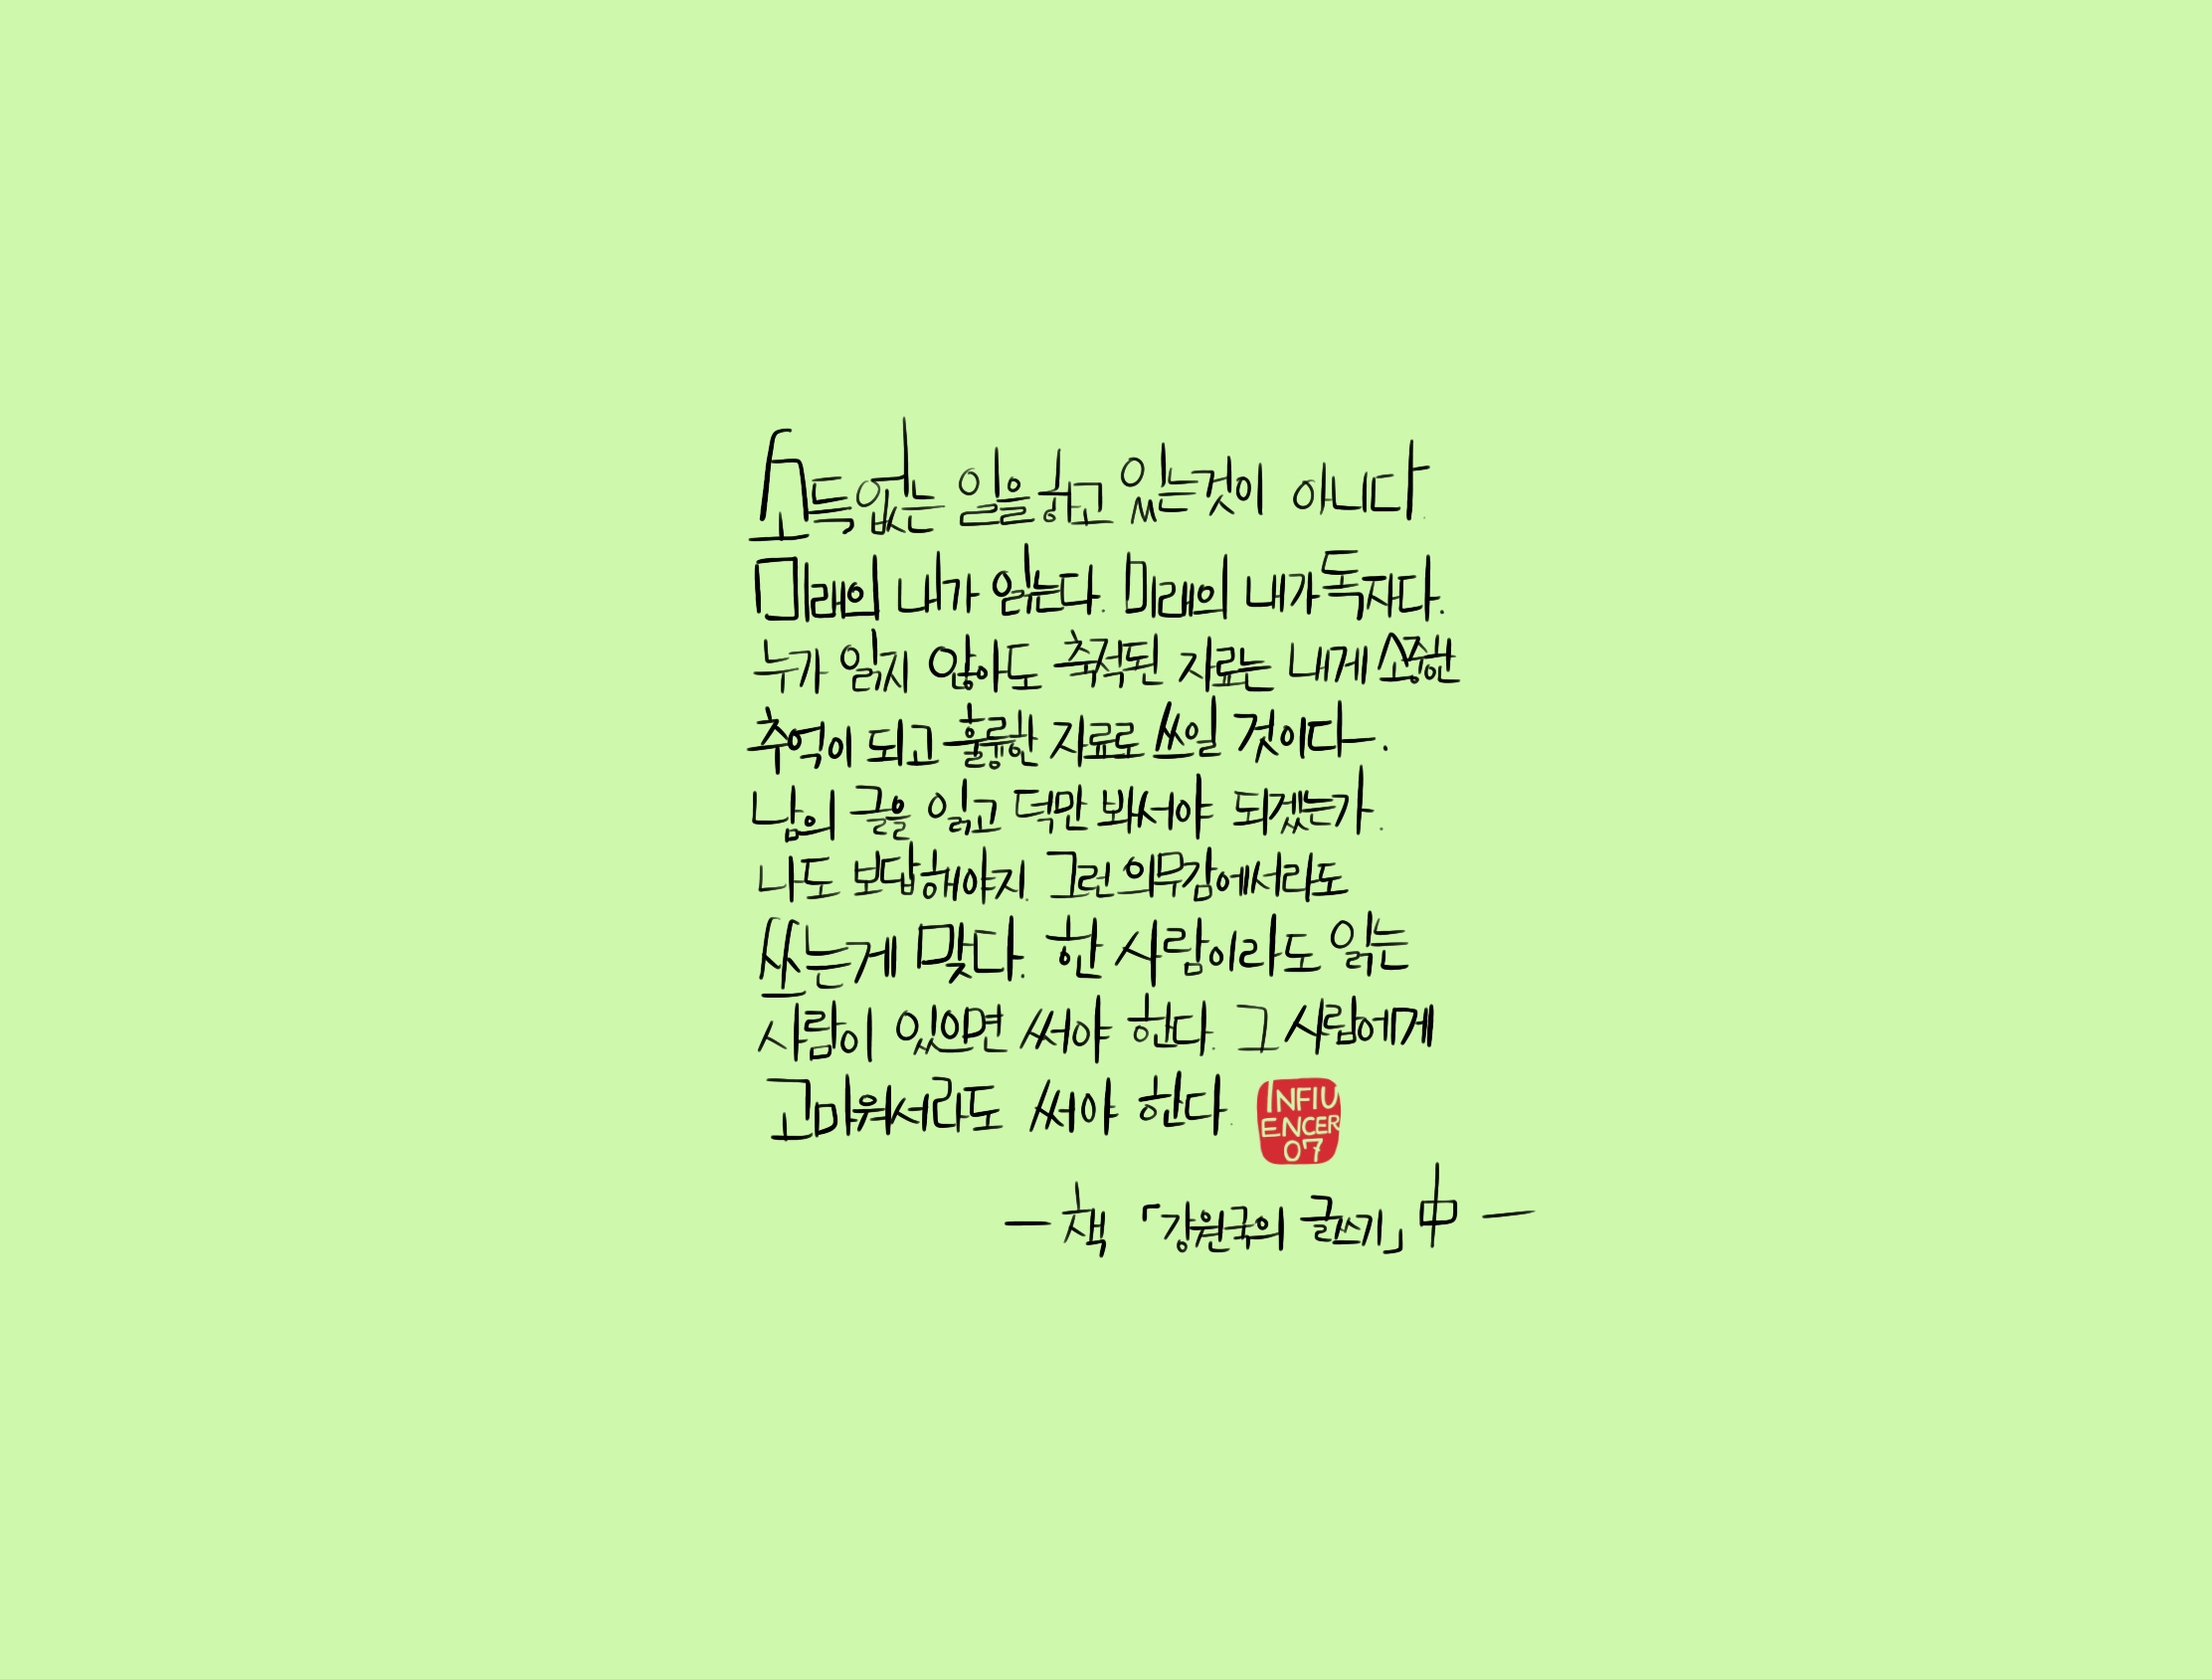 소득없는 일을 하고 있는것이 아니다.
미래의 내가 읽는다. 미래의 내가 독자다.
누가 읽지 않아도 축적된 자료는 내게 소중한
추억이 되고 훌륭한 자료로 쓰일 것이다.
남의 글을 읽고 덕만 봐서야 되겠는가.
나도 보답해야지. 그런 의무감에서라도
쓰는게 맞다. 한 사람이라도 읽는
사람이 있으면 써야 한다. 그 사람에게
고마워서라도 써야 한다.
INFIU
ENCER
07
- 책 「강원국의 글쓰기」 中 -